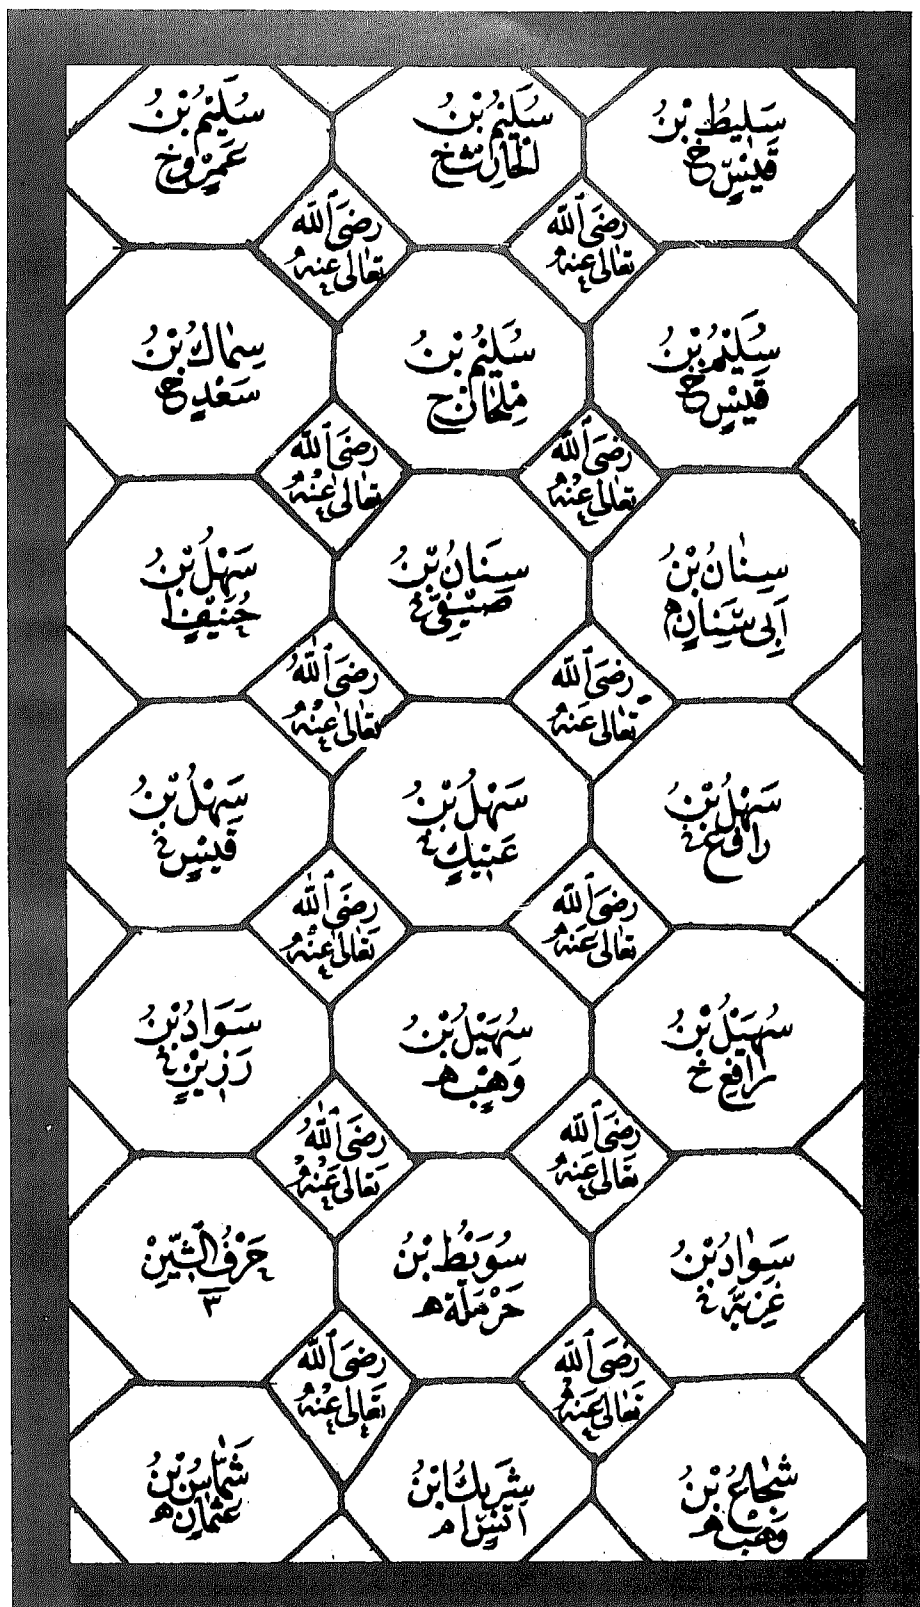 سَلِيطُ بْنُ
قَيْسٍ خ
سُلَيْمُ بْنُ
الْحَارِثِ خ
سُلَيْمُ بْنُ
عَمْرٍو خ
رَضِيَ ٱللّٰهُ
تَعَالٰى عَنْهُ
رَضِيَ ٱللّٰهُ
تَعَالٰى عَنْهُ
سُلَيْمُ بْنُ
قَيْسٍ خ
سُلَيْمُ بْنُ
مِلْحَانَ خ
سِمَاكُ بْنُ
سَعْدٍ خ
رَضِيَ ٱللّٰهُ
تَعَالٰى عَنْهُ
رَضِيَ ٱللّٰهُ
تَعَالٰى عَنْهُ
سِنَانُ بْنُ
أَبِي سِنَانٍ م
سِنَانُ بْنُ
صَيْفِيٍّ خ
سَهْلُ بْنُ
حُنَيْفٍ ا
رَضِيَ ٱللّٰهُ
تَعَالٰى عَنْهُ
رَضِيَ ٱللّٰهُ
تَعَالٰى عَنْهُ
سَهْلُ بْنُ
رَافِعٍ خ
سَهْلُ بْنُ
عَتِيكٍ خ
سَهْلُ بْنُ
قَيْسٍ خ
رَضِيَ ٱللّٰهُ
تَعَالٰى عَنْهُ
رَضِيَ ٱللّٰهُ
تَعَالٰى عَنْهُ
سُهَيْلُ بْنُ
رَافِعٍ خ
سُهَيْلُ بْنُ
وَهْبٍ م
سَوَادُ بْنُ
رَزِينٍ خ
رَضِيَ ٱللّٰهُ
تَعَالٰى عَنْهُ
رَضِيَ ٱللّٰهُ
تَعَالٰى عَنْهُ
سَوَادُ بْنُ
غَزِيَّةَ خ
سُوَيْبِطُ بْنُ
حَرْمَلَةَ م
حَرْفُ الشِّينِ
٣
رَضِيَ ٱللّٰهُ
تَعَالٰى عَنْهُ
رَضِيَ ٱللّٰهُ
تَعَالٰى عَنْهُ
شُجَاعُ بْنُ
وَهْبٍ م
شَرِيكُ بْنُ
أَنَسٍ ا م
شَمَّاسُ بْنُ
عُثْمَانَ م